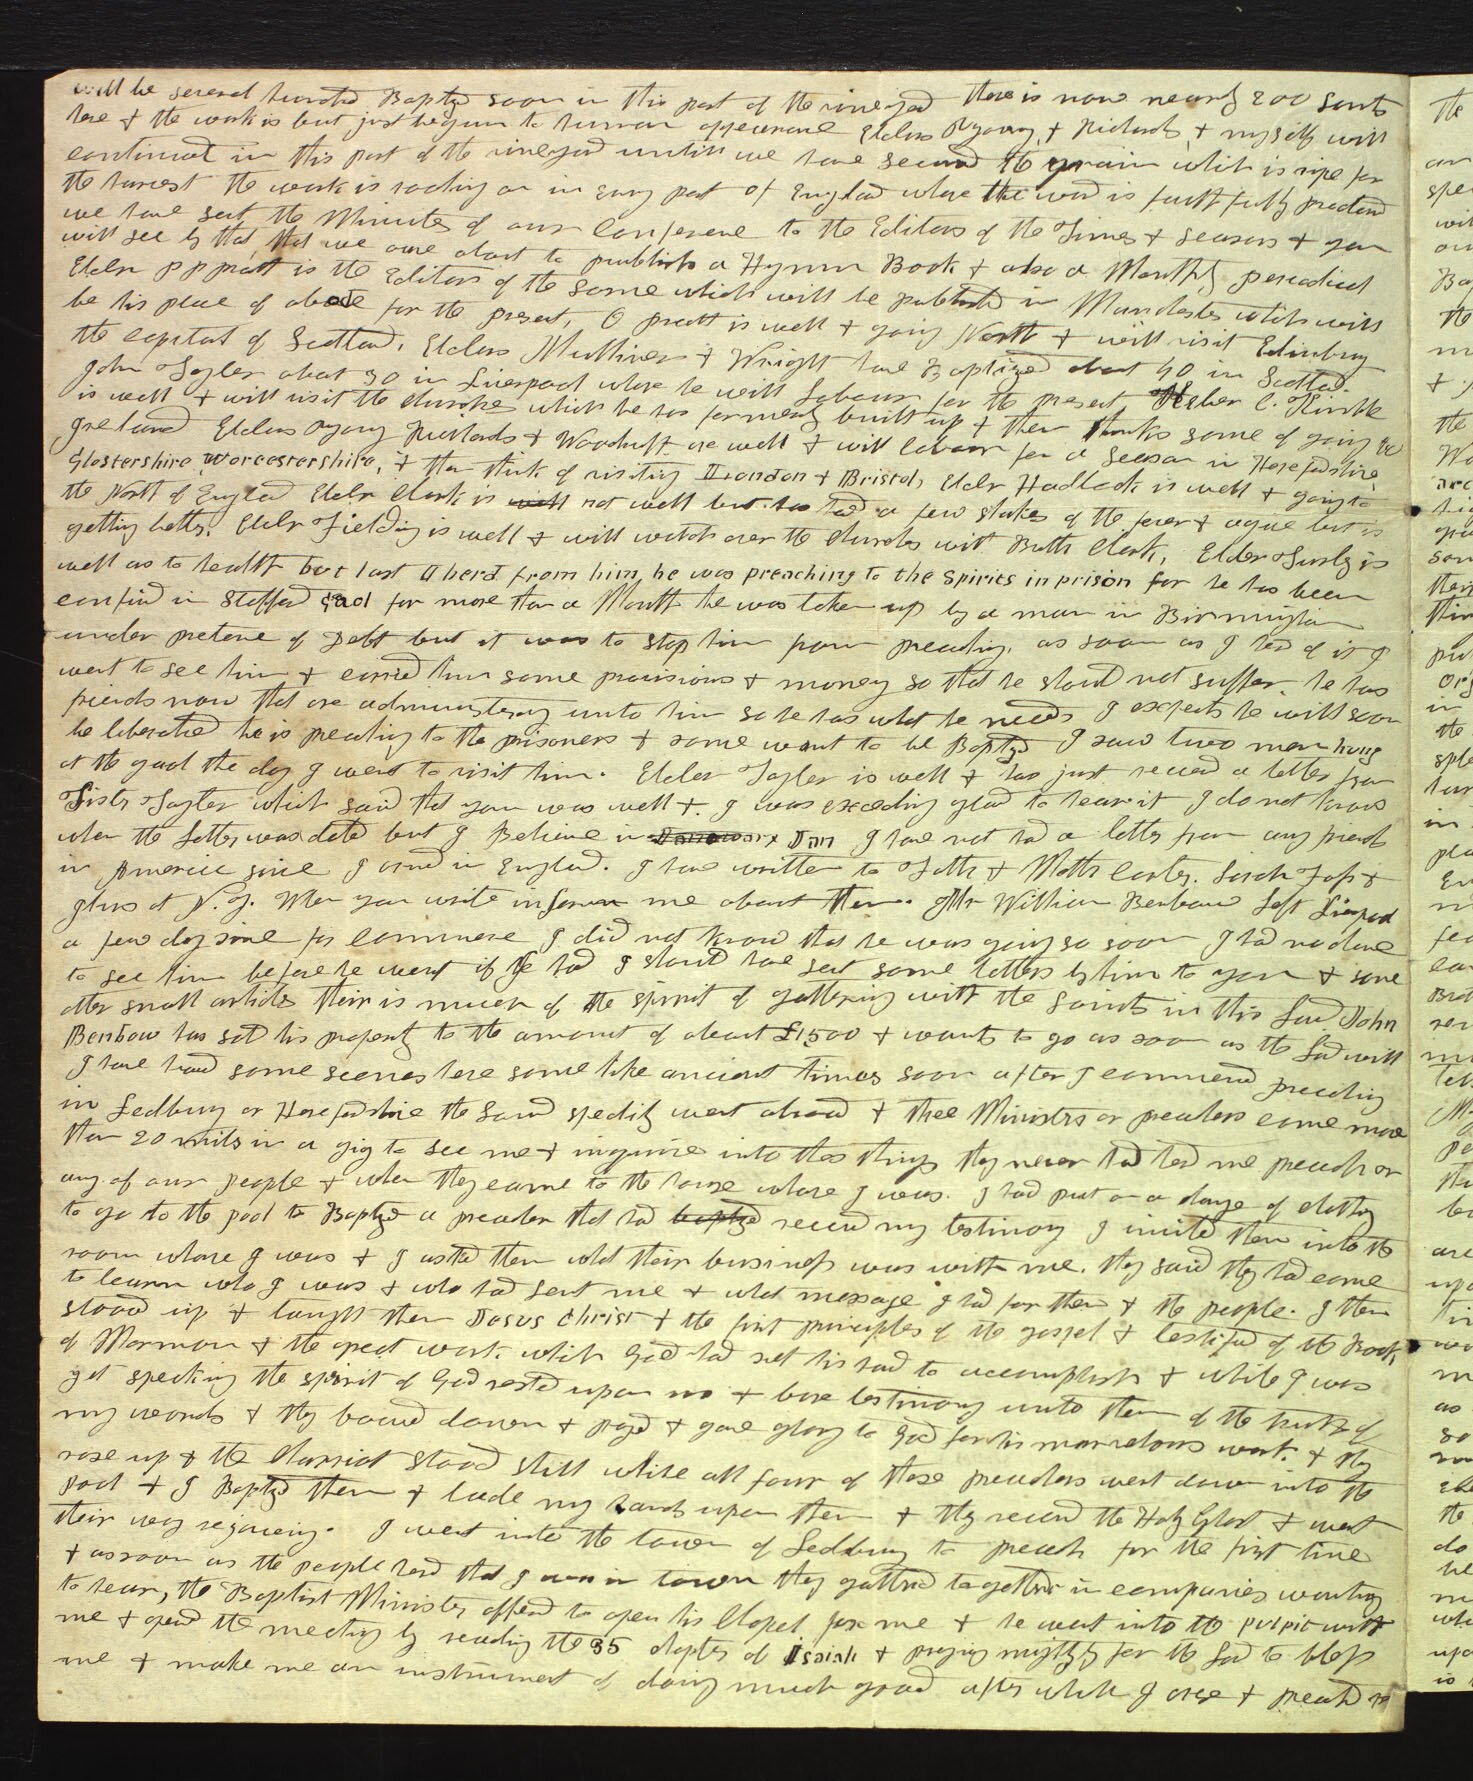 will be several hundred Baptized soon in this part of the vineyard there is now nearly 200 Saints
here & the work is but just begun to human appearance Elders BYoung, & Richards & myself will
continued in this part of the vineyard untill we have secured the grain which is ripe for
the harvest the work is rooling on in evry part of England whare the word is faithfully preached
we have sent the Minutes of our Conference to the Editors of the Times & Seasons & you
will see by that that we are about to publish a Hymn Book & also a Monthly periodical
Elder P P pratt is the Editor of the same which will be published in Manchester which will
be his place of abode for the present, O pratt is well & going North & will visit Edinburg
the capital of Scotland. Elders Mulliner & Wright have Baptized about 40 in Scotland.
John Taylor about 30 in Liverpool where he will Labour for the present Heber C. Kimble
is well & will visit the churches which he has formerly built up & then thinks some of going to
Ireland Elders Byoung Richards & Woodruff are well & will labour for a season in Herefordshire
Glostershire, Worcestershire, & then think of visiting London & Bristol, Elder Hadlock is well & going to
the North of England Elder Clark is well not well but has had a few shakes of the fever & ague but is
getting better. Elder Fielding is well & will watch over the churches with Broth Clark, Elder Turly is
well as to health but last I herd from him he was preaching to the spirits in prison for he has been
confind in Stafford gaol for more than a Month he was taken up by a man in Birmingham
under pretence of Debt but it was to stop him from preaching, as soon as I herd of it I
went to see him & carried him some provisions & money so that he should not suffer. he has
friends now that are administering unto him so he has what he needs I expects he will soon
be liberated he is preaching to the prisoners & some want to be Baptized I saw two men hung
at the gaol the day I went to visit him. Elder Taylor is well & has just received a letter from
Sister Taylor which said that you was well &. I was exceeding glad to hear it I do not know
when the letter was dated but I Believe in Jan I have not had a letter from any friend
in America since I arrived in England. I have written to Father & Mother Carter. Sarah Foss &
at N.Y. When you write inform me about them. Mr William Benbow Left Liverpool
a few days since for commerce I did not know that he was going so soon I had no chance
to see him before he went if he had I should have sent some letters by him to you & some
other small articles their is much of the spirit of gathering with the saints in this land John
Benbow has sold his property to the amount of about £1500 & wants to go as soon as the Lord will
I have had some scenes here some like ancient times soon after I commenced preaching
in Ledbury or Herefordshire the sound speedily went abroad & three Ministers or preachers come more
than 20 miles in a gig to see me & inquire into thes things they never had herd me preach or
any of our people & when they came to the house where I was. I had put on a change of clothing
to go to the pool to Baptized a preacher that had baptized received my testimony I invited them into the
room whare I was & I asked them what their business was with me. they said they had come
to learn who I was & who had sent me & what message I had for them & the people. I then
stood up & taught them Jesus Christ & the first principles of the gospel & testifyed of the Book
of Mormon & the great work which God had set his hand to accomplish & while I was
yet speaking the spirit of God rested upon us & bore testimony unto them of the truth of
my words & they bowed down & prayed & gave glory to God for his marvelous work. & they
rose up & the Charriot stood still while all four of those preachers went down into the
pool & I Baptized them & laide my hands upon them & they received the Holy Ghost & went
their way rejoiceing. I went into the town of Ledbury to preach for the first time
& as soon as the people herd that I was in town they gathered together in companies wanting
to hear, the Baptist Minister offered to open his Chapel for me & he went into the pulpit with
me & opend the meeting by reading the 35 chapter of Isaiah & praying mightily for the Lord to bless
me & make me an instrument of doing much good after which I arose & preached